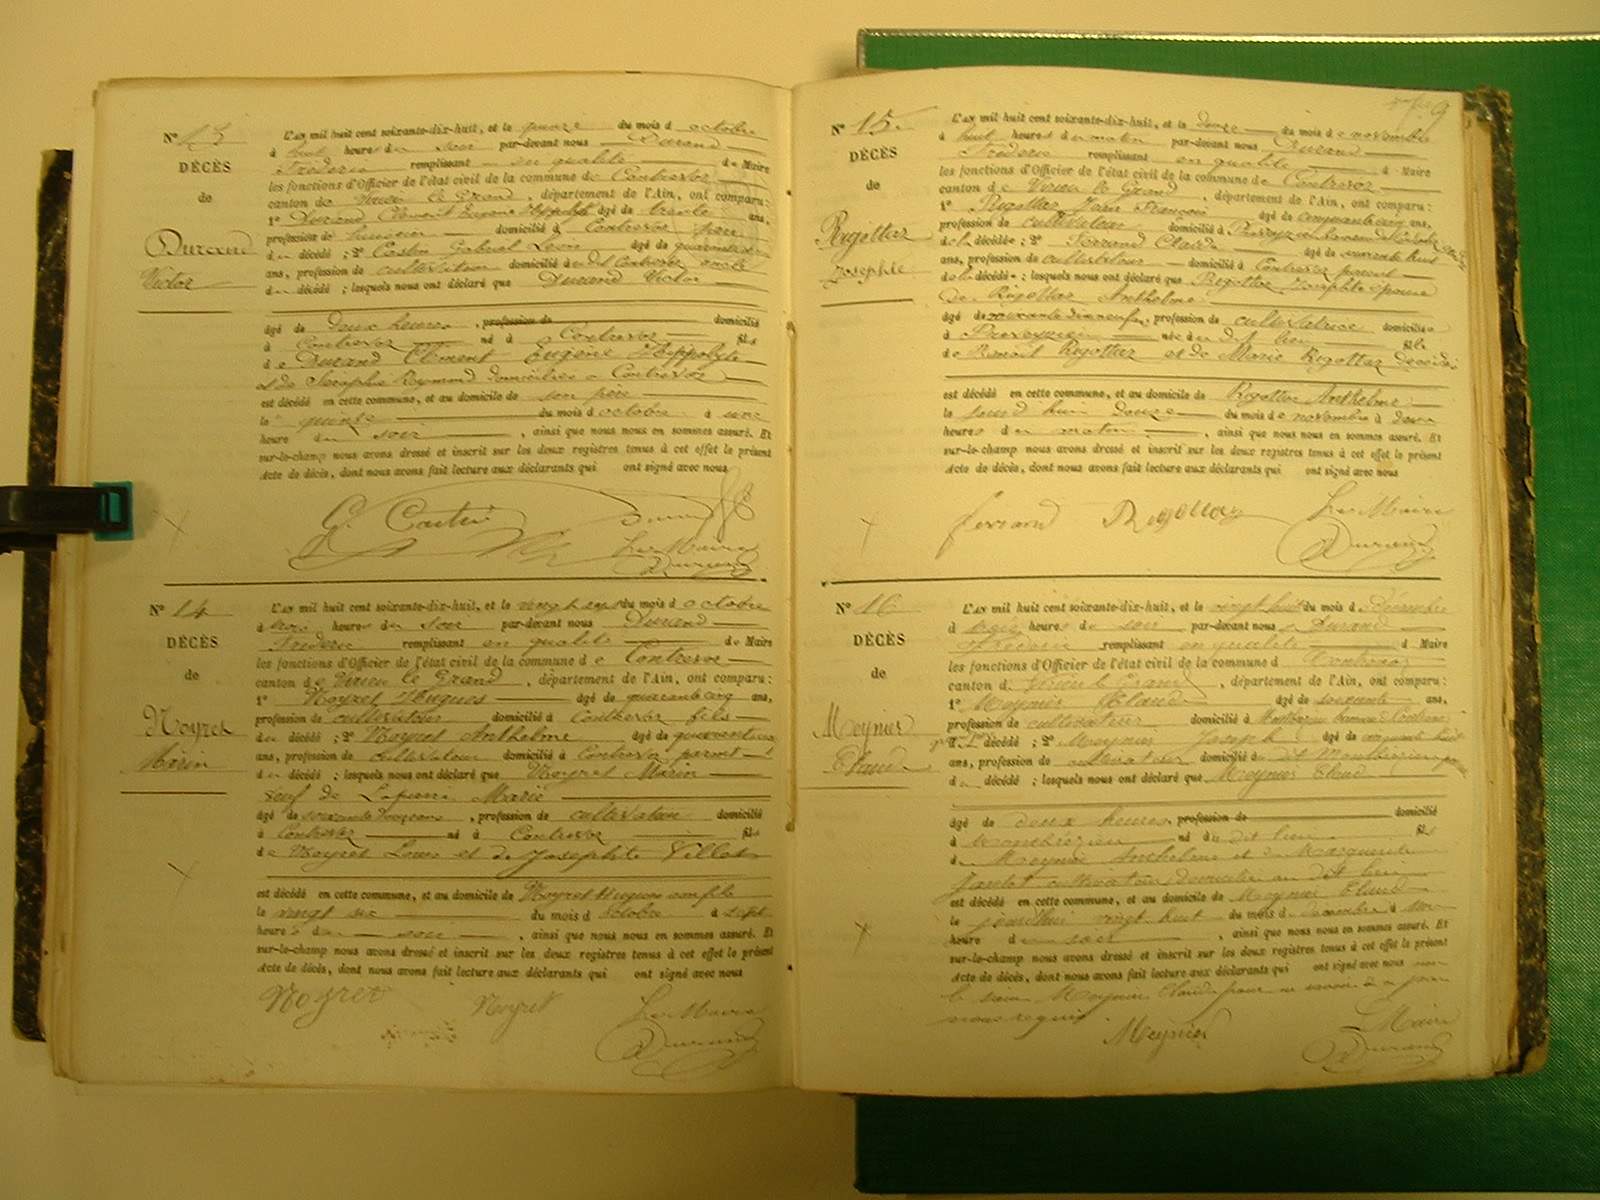 N° 13
DÉCÈS
de
Durand
Victor
L'AN mil huit cent soixante-dix-huit, et le quinze du mois d octobre
à huit heures du soir par-devant nous Durand
Frédéric remplissant en qualité de Maire
les fonctions d'Officier de l'état civil de la commune de Contrevoz
canton de Virieu le Grand, département de l'Ain, ont comparu :
1° Durand Clément Eugène Hippolyte âgé de trente ans,
profession de domicilié à Contrevoz père
du décédé ; 2° Castin Gabriel Louis âgé de quarante
ans, profession de cultivateur domicilié à Contrevoz oncle
du décédé ; lesquels nous ont déclaré que Durand Victor
âgé de deux heures, profession de domicilié
à Contrevoz né à Contrevoz fils
de Durand Clément Eugène Hippolyte
et de Séraphie Reymond domiciliés à Contrevoz
est décédé en cette commune, et au domicile de son père
le quinze du mois d octobre à une
heure du soir, ainsi que nous nous en sommes assuré. Et
sur-le-champ nous avons dressé et inscrit sur les deux registres tenus à cet effet le présent
Acte de décès, dont nous avons fait lecture aux déclarants qui ont signé avec nous
Le Maire
Durand
N° 14
DÉCÈS
de
Noyret
Marin
L'AN mil huit cent soixante-dix-huit, et le vingt sept du mois d octobre
à trois heures du soir par-devant nous Durand
Frédéric remplissant en qualité de Maire
les fonctions d'Officier de l'état civil de la commune de Contrevoz
canton de Virieu le Grand, département de l'Ain, ont comparu :
1° Noyret Hugues âgé de quarante cinq ans,
profession de cultivateur domicilié à Contrevoz fils
du décédé ; 2° Noyret Anthelme âgé de quarante
ans, profession de cultivateur domicilié à Contrevoz parent
du décédé ; lesquels nous ont déclaré que Noyret Marin
veuf de Marie
âgé de soixante, profession de cultivateur domicilié
à Contrevoz né à Contrevoz fils
de Noyret Louis et de Josephte Villet
est décédé en cette commune, et au domicile de Noyret Hugues son fils
le vingt six du mois d octobre à sept
heures du soir, ainsi que nous nous en sommes assuré. Et
sur-le-champ nous avons dressé et inscrit sur les deux registres tenus à cet effet le présent
Acte de décès, dont nous avons fait lecture aux déclarants qui ont signé avec nous
Noyret Noyret Le Maire
Durand
9
N° 15
DÉCÈS
de
Rigottaz
Josephte
L'AN mil huit cent soixante-dix-huit, et le douze du mois de novembre
à huit heures du matin par-devant nous Durand
Frédéric remplissant en qualité d Maire
les fonctions d'Officier de l'état civil de la commune de Contrevoz
canton de Virieu le Grand, département de l'Ain, ont comparu :
1° Rigottaz Jean François âgé de cinquante cinq ans,
profession de cultivateur domicilié à
de la décédée ; 2° Ferrand Claude âgé de soixante huit
ans, profession de cultivateur domicilié à Contrevoz parent
de la décédée ; lesquels nous ont déclaré que Rigottaz Josephte épouse
de Rigottaz Anthelme
âgé de soixante dix neuf, profession de cultivatrice domiciliée
à née au dit lieu fille
de Benoît Rigottaz et de Marie Rigottaz décédés
est décédé en cette commune, et au domicile de Rigottaz Anthelme
le jourd'hui douze du mois de novembre à deux
heures du matin, ainsi que nous nous en sommes assuré. Et
sur-le-champ nous avons dressé et inscrit sur les deux registres tenus à cet effet le présent
Acte de décès, dont nous avons fait lecture aux déclarants qui ont signé avec nous
ferrand Rigottaz Le Maire
Durand
N° 16
DÉCÈS
de
Meynier
Claude
L'AN mil huit cent soixante-dix-huit, et le vingt huit du mois d décembre
à trois heures du soir par-devant nous Durand
Frédéric remplissant en qualité d Maire
les fonctions d'Officier de l'état civil de la commune d Contrevoz
canton d Virieu le Grand, département de l'Ain, ont comparu :
1° Meynier Claude âgé de soixante ans,
profession de cultivateur domicilié à
décédé ; 2° Meynier Joseph âgé de cinquante huit
ans, profession de cultivateur domicilié au dit
du décédé ; lesquels nous ont déclaré que Meynier Claude
âgé de deux heures, profession de domicilié
à né au dit lieu fils
de Meynier Anthelme et de Marguerite
cultivateurs domiciliés au dit lieu
est décédé en cette commune, et au domicile de Meynier Claude
le jourd'hui vingt huit du mois d décembre à une
heure du soir, ainsi que nous nous en sommes assuré. Et
sur-le-champ nous avons dressé et inscrit sur les deux registres tenus à cet effet le présent
Acte de décès, dont nous avons fait lecture aux déclarants qui ont signé avec nous non
le sieur Meynier Claude pour ne savoir de ce par
nous requis.
Meynier Le Maire
Durand